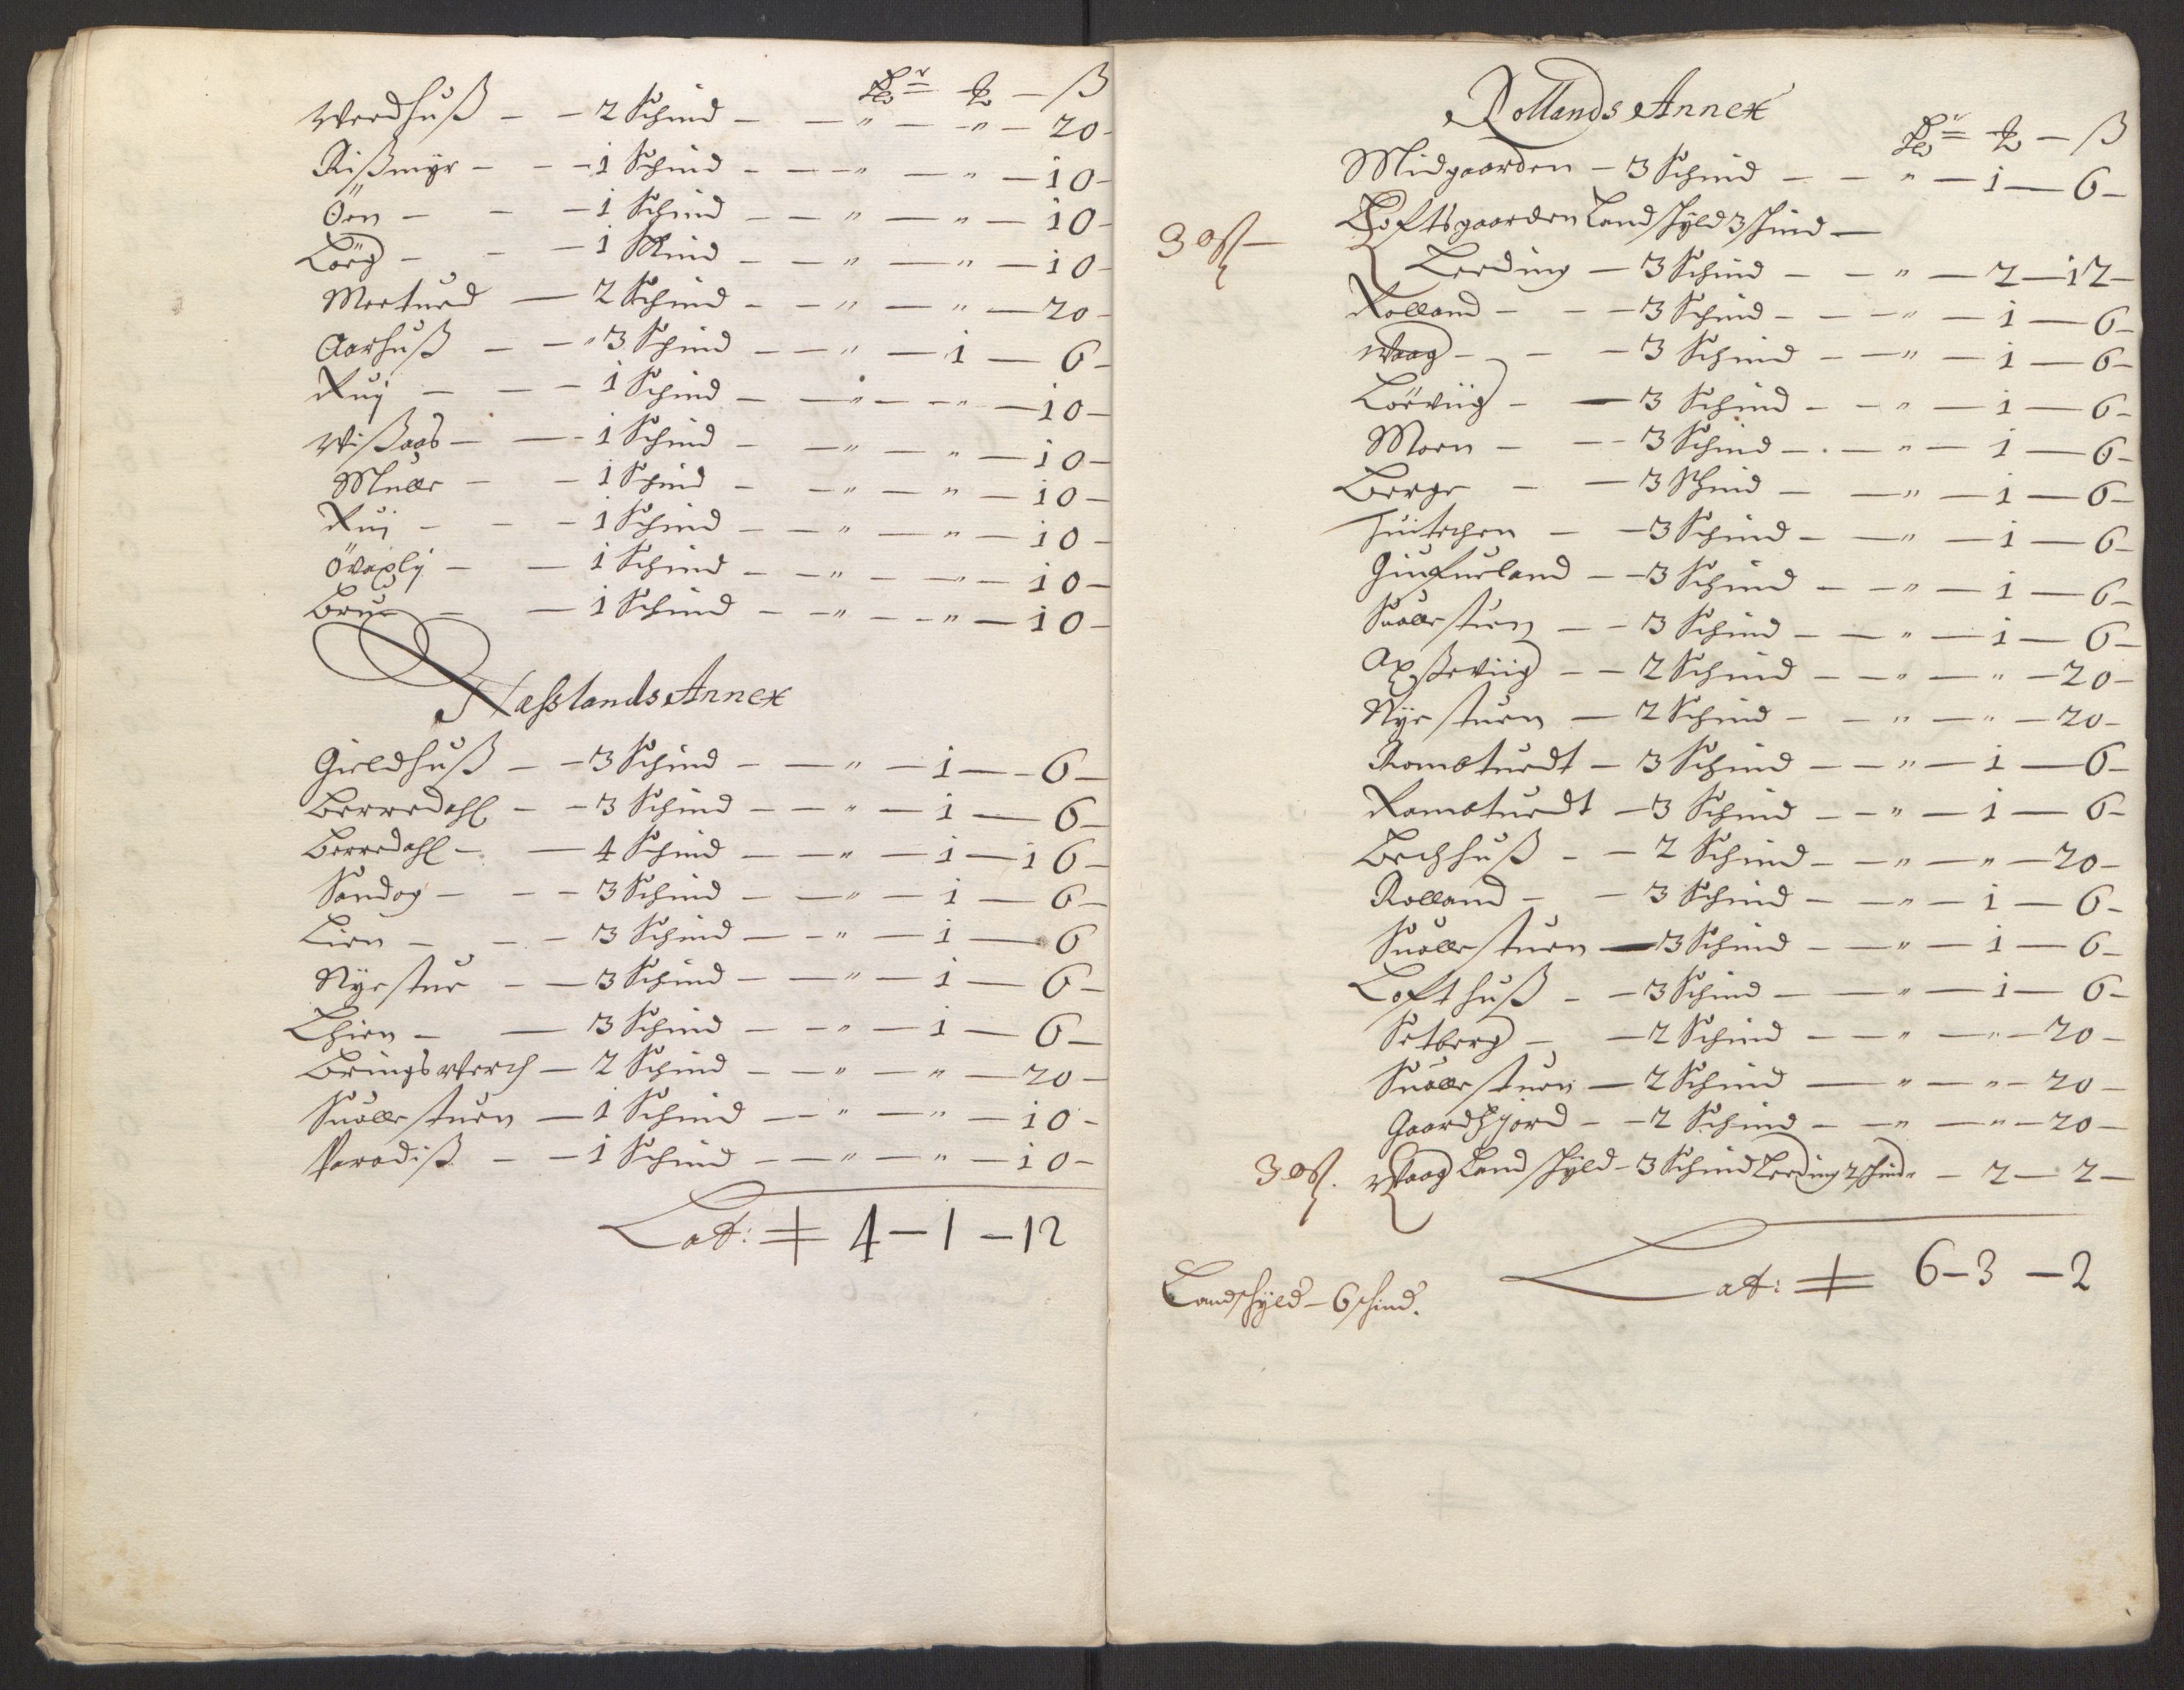 Rdr — ß
Werdhuß — 2 Schind — " — " — 20
Rißmyr — 1 Schind — " — " — 10
Öen — 1 Schind — " — " — 10
Börg — 1 Schind — " — " — 10
Mortued — 2 Schind — " — " — 20
Aarhuß — 3 Schind — " — 1 — 6
Ruÿ — 1 Schind — " — " — 10
Wißaas — 1 Schind — " — " — 10
Mulle — 1 Schind — " — " — 10
Ruj — 1 Schind — " — " — 10
Öraplj — 1 Schind — " — " — 10
Brue — 1 Schind — " — " — 10
Naßlands Annex
Gieldhuß — 3 Schind — " — 1 — 6
Berredahl — 3 Schind — " — 1 — 6
Berredahl — 4 Schind — " — 1 — 16
Sandog — 3 Schind — " — 1 — 6
Lien — 3 Schind — " — 1 — 6
Nyestue — 3 Schind — " — 1 — 6
Thien — 3 Schind — " — 1 — 6
Bringswerch — 2 Schind — " — " — 20
Suallestuen — 1 Schind — " — " — 10
Paradiß — 1 Schind — " — " — 10
Lat: 4 — 1 — 12
Rollands Annex
Rdr — ß
Midgaarden — 3 Schind — " — 1 — 6
Toftsgaarden Landschÿld 3 schind —
Leeding — 3 Schind — " — 2 — 12
Rolland — 3 Schind — " — 1 — 6
Waag — 3 Schind — " — 1 — 6
Börviig — 3 Schind — " — 1 — 6
Moen — 3 Schind — " — 1 — 6
Berge — 3 Schind — " — 1 — 6
Huitechen — 3 Schind — " — 1 — 6
Giufueland — 3 Schind — " — 1 — 6
Suallestuen — 3 Schind — " — 1 — 6
Apsteviig — 2 Schind — " — " — 20
Nÿestuen — 2 Schind — " — " — 20
Rambtuedt — 3 Schind — " — 1 — 6
Rambtuedt — 3 Schind — " — 1 — 6
Bechhuß — 2 Schind — " — " — 20
Rolland — 3 Schind — " — 1 — 6
Suallestuen — 3 Schind — " — 1 — 6
Lofthuß — 3 Schind — " — 1 — 6
Setberg — 2 Schind — " — " — 20
Suallestuen — 2 Schind — " — " — 20
Gaardhjord — 2 Schind — " — " — 20
Waag Landschÿld — 3 Schind Leeding 2 schind — 2 — 2
Lat: 6 — 3 — 2
Landschÿld — 6 schind.